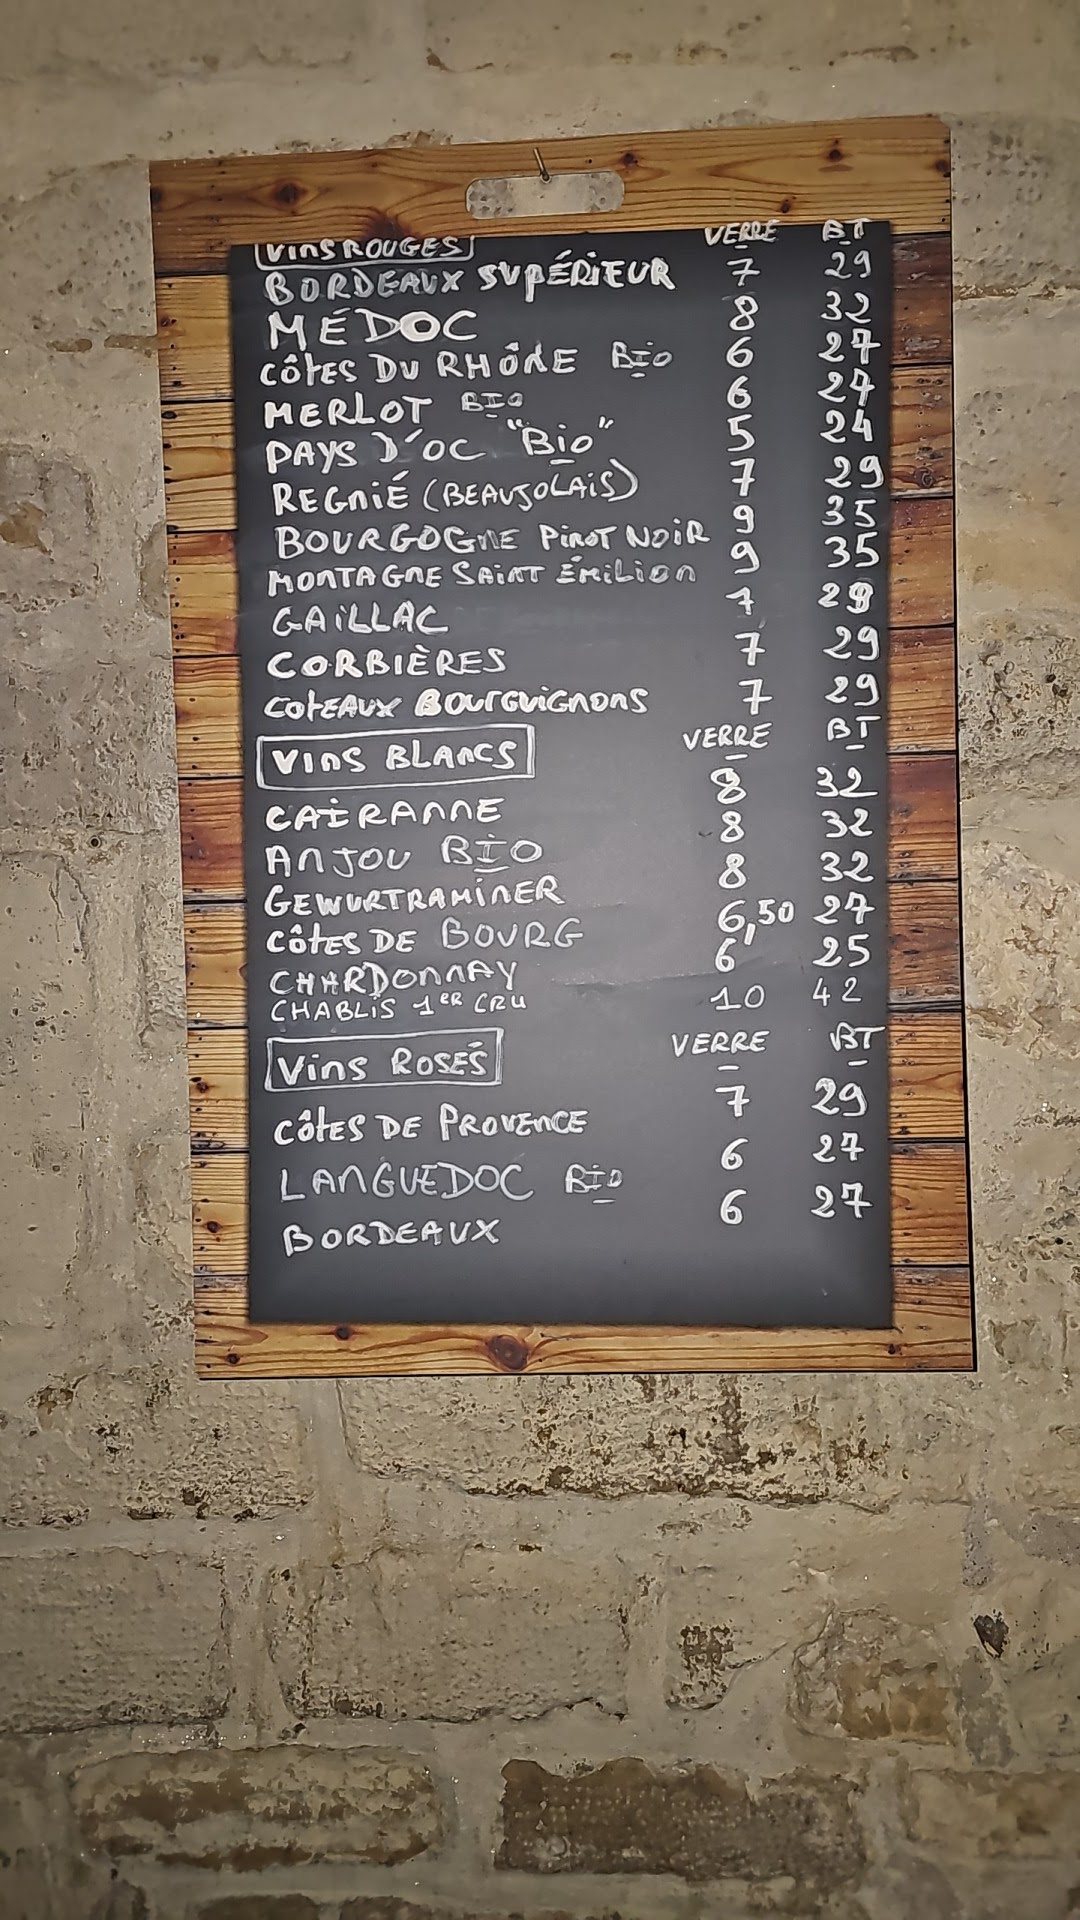 VINS ROUGES VERRE BT
BORDEAUX SUPÉRIEUR 7 29
MÉDOC 8 32
CÔTES DU RHÔNE BIO 6 27
MERLOT BIO 6 27
PAYS D'OC "BIO" 5 24
REGNIÉ (BEAUJOLAIS) 7 29
BOURGOGNE PINOT NOIR 9 35
MONTAGNE SAINT ÉMILION 9 35
GAILLAC 7 29
CORBIÈRES 7 29
COTEAUX BOURGUIGNONS 7 29
VINS BLANCS VERRE BT
CAIRANNE 8 32
ANJOU BIO 8 32
GEWURTRAMINER 8 32
CÔTES DE BOURG 6,50 27
CHARDONNAY 6 25
CHABLIS 1ER CRU 10 42
VINS ROSÉS VERRE BT
CÔTES DE PROVENCE 7 29
LANGUEDOC BIO 6 27
BORDEAUX 6 27